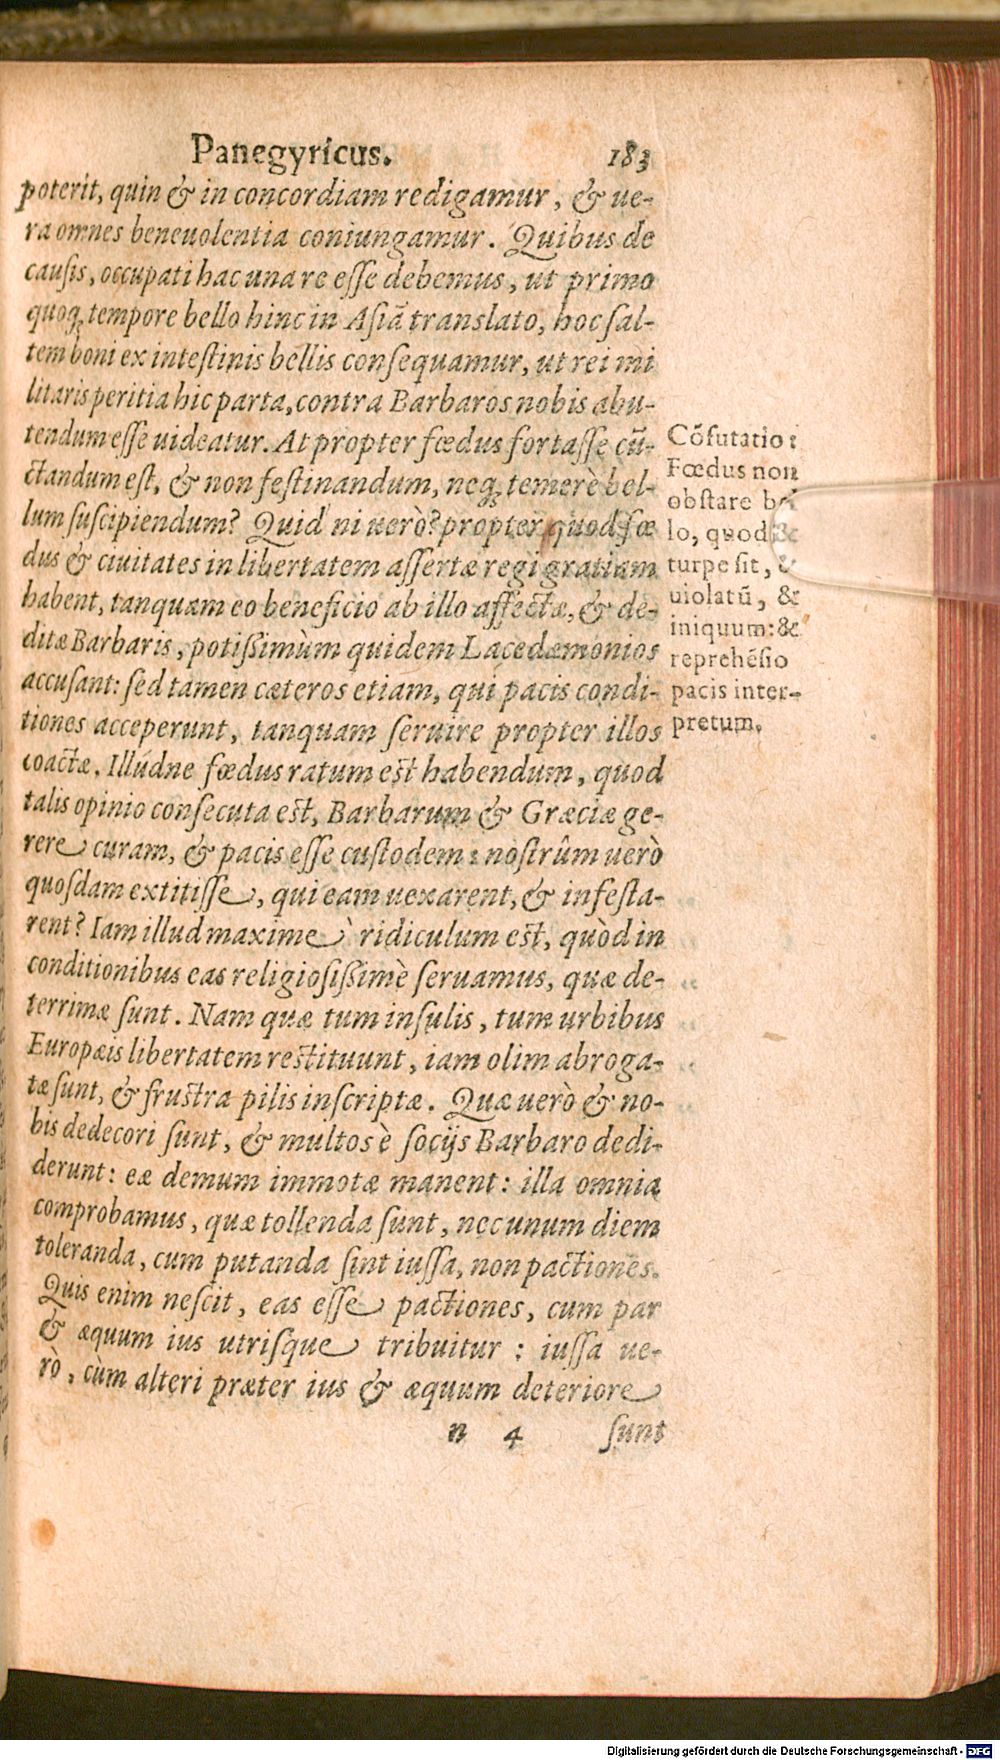 Panegyricus. 183
poterit, quin & in concordiam redigamur, & ue-
ra omnes beneuolentia coniungamur. Quibus de
causis, occupati hac una re esse debemus, ut primo
quoq; tempore bello hinc in Asiā translato, hoc sal-
tem boni ex intestinis bellis consequamur, ut rei mi
litaris peritia hic parta, contra Barbaros nobis abu-
tendum esse uideatur. At propter fœdus fortasse cū-
ctandum est, & non festinandum, neq; temerè bel-
lum suscipiendum? Quid ni uerò? propter quod fœ
dus & ciuitates in libertatem assertæ regi gratiam
habent, tanquam eo beneficio ab illo affectæ, & de-
ditæ Barbaris, potißimùm quidem Lacedæmonios
accusant: sed tamen cæteros etiam, qui pacis condi-
tiones acceperunt, tanquam seruire propter illos
coactæ. Illúdne fœdus ratum est habendum, quod
talis opinio consecuta est, Barbarum & Græciæ ge-
rere curam, & pacis esse custodem: nostrûm uerò
quosdam extitisse, qui eam uexarent, & infesta-
rent? Iam illud maximè ridiculum est, quòd in
conditionibus eas religiosißimè seruamus, quæ de-
terrimæ sunt. Nam quæ tum insulis, tum urbibus
Europæis libertatem restituunt, iam olim abroga-
tæ sunt, & frustra pilis inscriptæ. Quæ uerò & no-
bis dedecori sunt, & multos è socijs Barbaro dedi-
derunt: eæ demum immotæ manent: illa omnia
comprobamus, quæ tollenda sunt, nec unum diem
toleranda, cum putanda sint iussa, non pactiones.
Quis enim nescit, eas esse pactiones, cum par
& æquum ius utrisque tribuitur: iussa ue-
rò, cùm alteri præter ius & æquum deteriore
n 4 sunt
Cōfutatio:
Fœdus non
obstare bel
lo, quod &
turpe sit, &
uiolatū, &
iniquum: &
reprehēsio
pacis inter-
pretum.
Digitalisierung gefördert durch die Deutsche Forschungsgemeinschaft - DFG